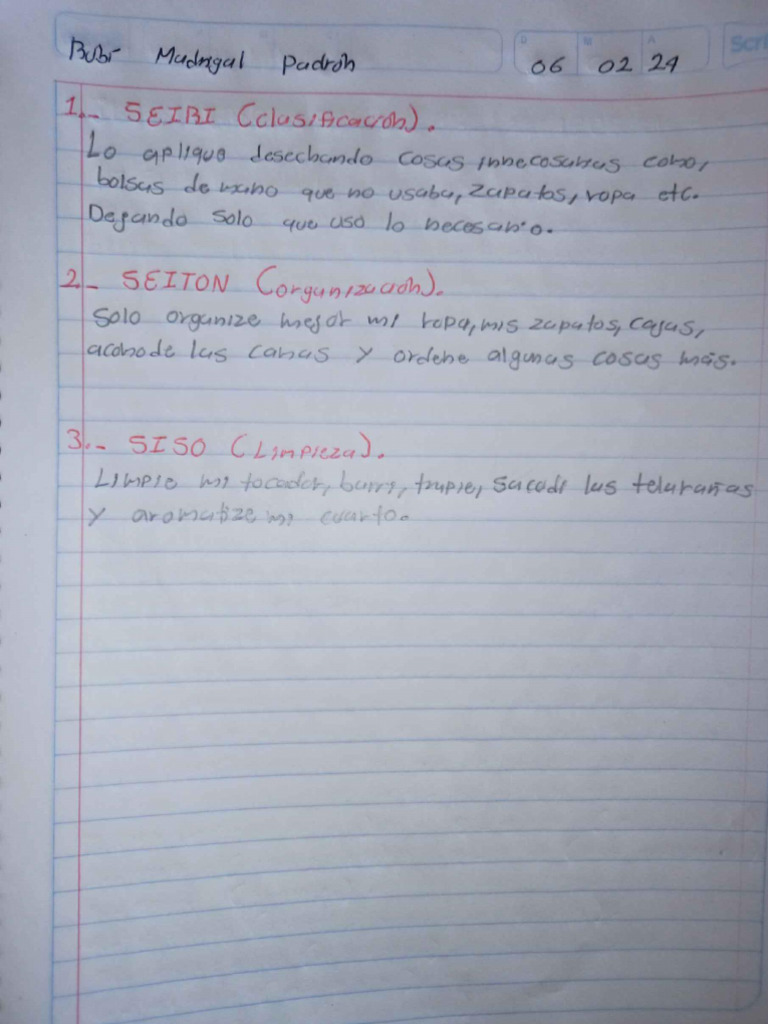 Madrigal Padrón
D M A
06 02 24
Scri
1.- SEIRI (clasificación).
Lo aplique desechando cosas innecesarias como,
bolsas de mano que no usaba, zapatos, ropa etc.
Dejando solo que uso lo necesario.
2- SEITON (organización).
Solo organize mejor mi ropa, mis zapatos, cajas,
acomode las camas y ordene algunas cosas más.
3.- SISO (Limpieza).
Limpie mi tocador, barri, trapie, sacudi las telarañas
y aromatize mi cuarto.